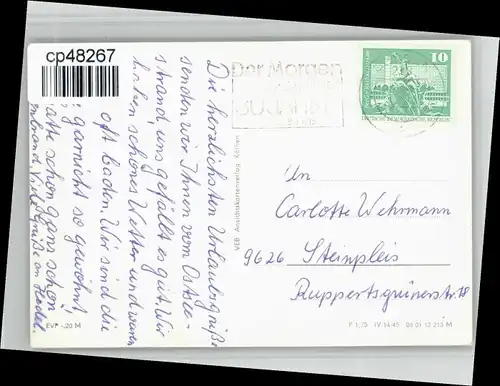 cp48267
Die herzlichsten Urlaubsgrüße
senden wir Ihnen vom Ostsee-
strand, uns gefällt es gut. Wir
haben schönes Wetter und waren
oft baden. Wir sind die
garnicht so gewöhnt
schon ganz schön
Viele Grüße an
Der Morgen
10
DEUTSCHE DEMOKRATISCHE REPUBLIK
VEB Ansichtskartenverlag Köthen
An
Carlotte Wehrmann
9626 Steinpleis
Ruppertsgrünerstr. 18
EVP -,20 M
P 1/75 IV-14-45 06 01 12 213 M